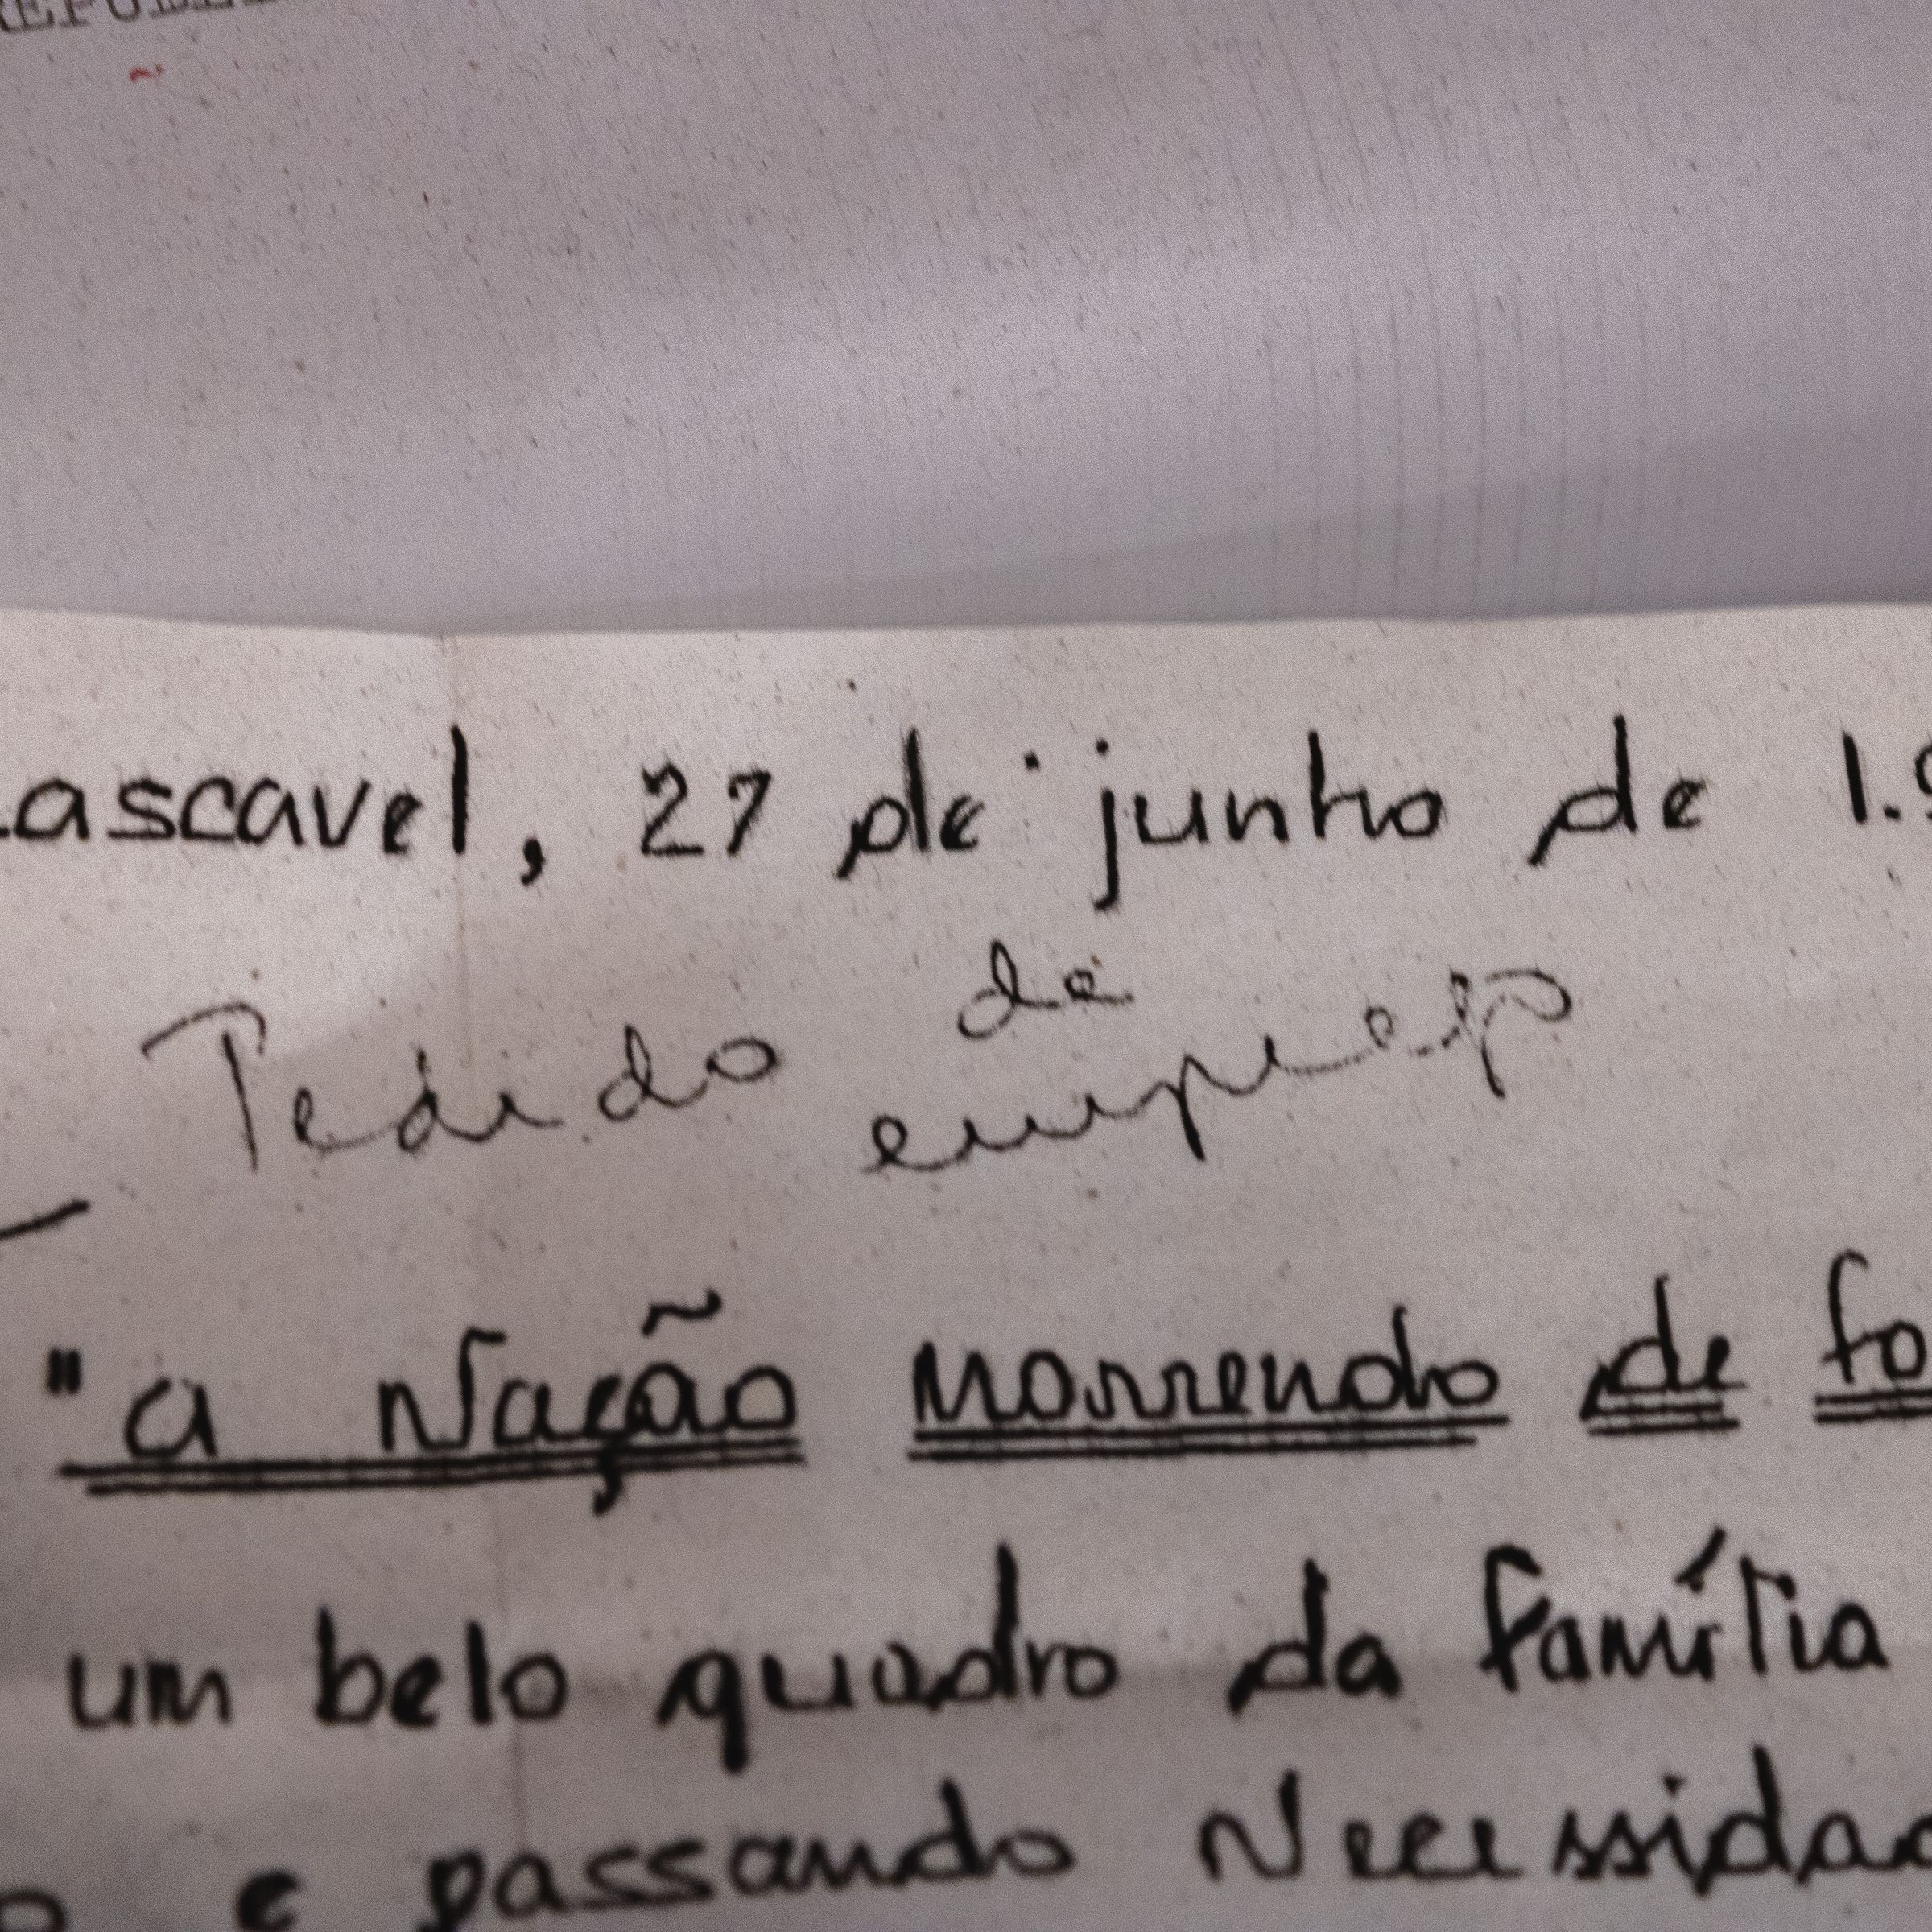 ascavel, 27 de junho de 1.9
Pedido de emprego
"a Nação morrendo de fo
um belo quadro da família
o e passando Necessidad